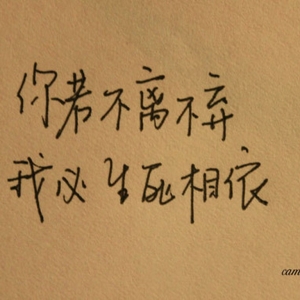 你若不离不弃
我必生死相依
cam